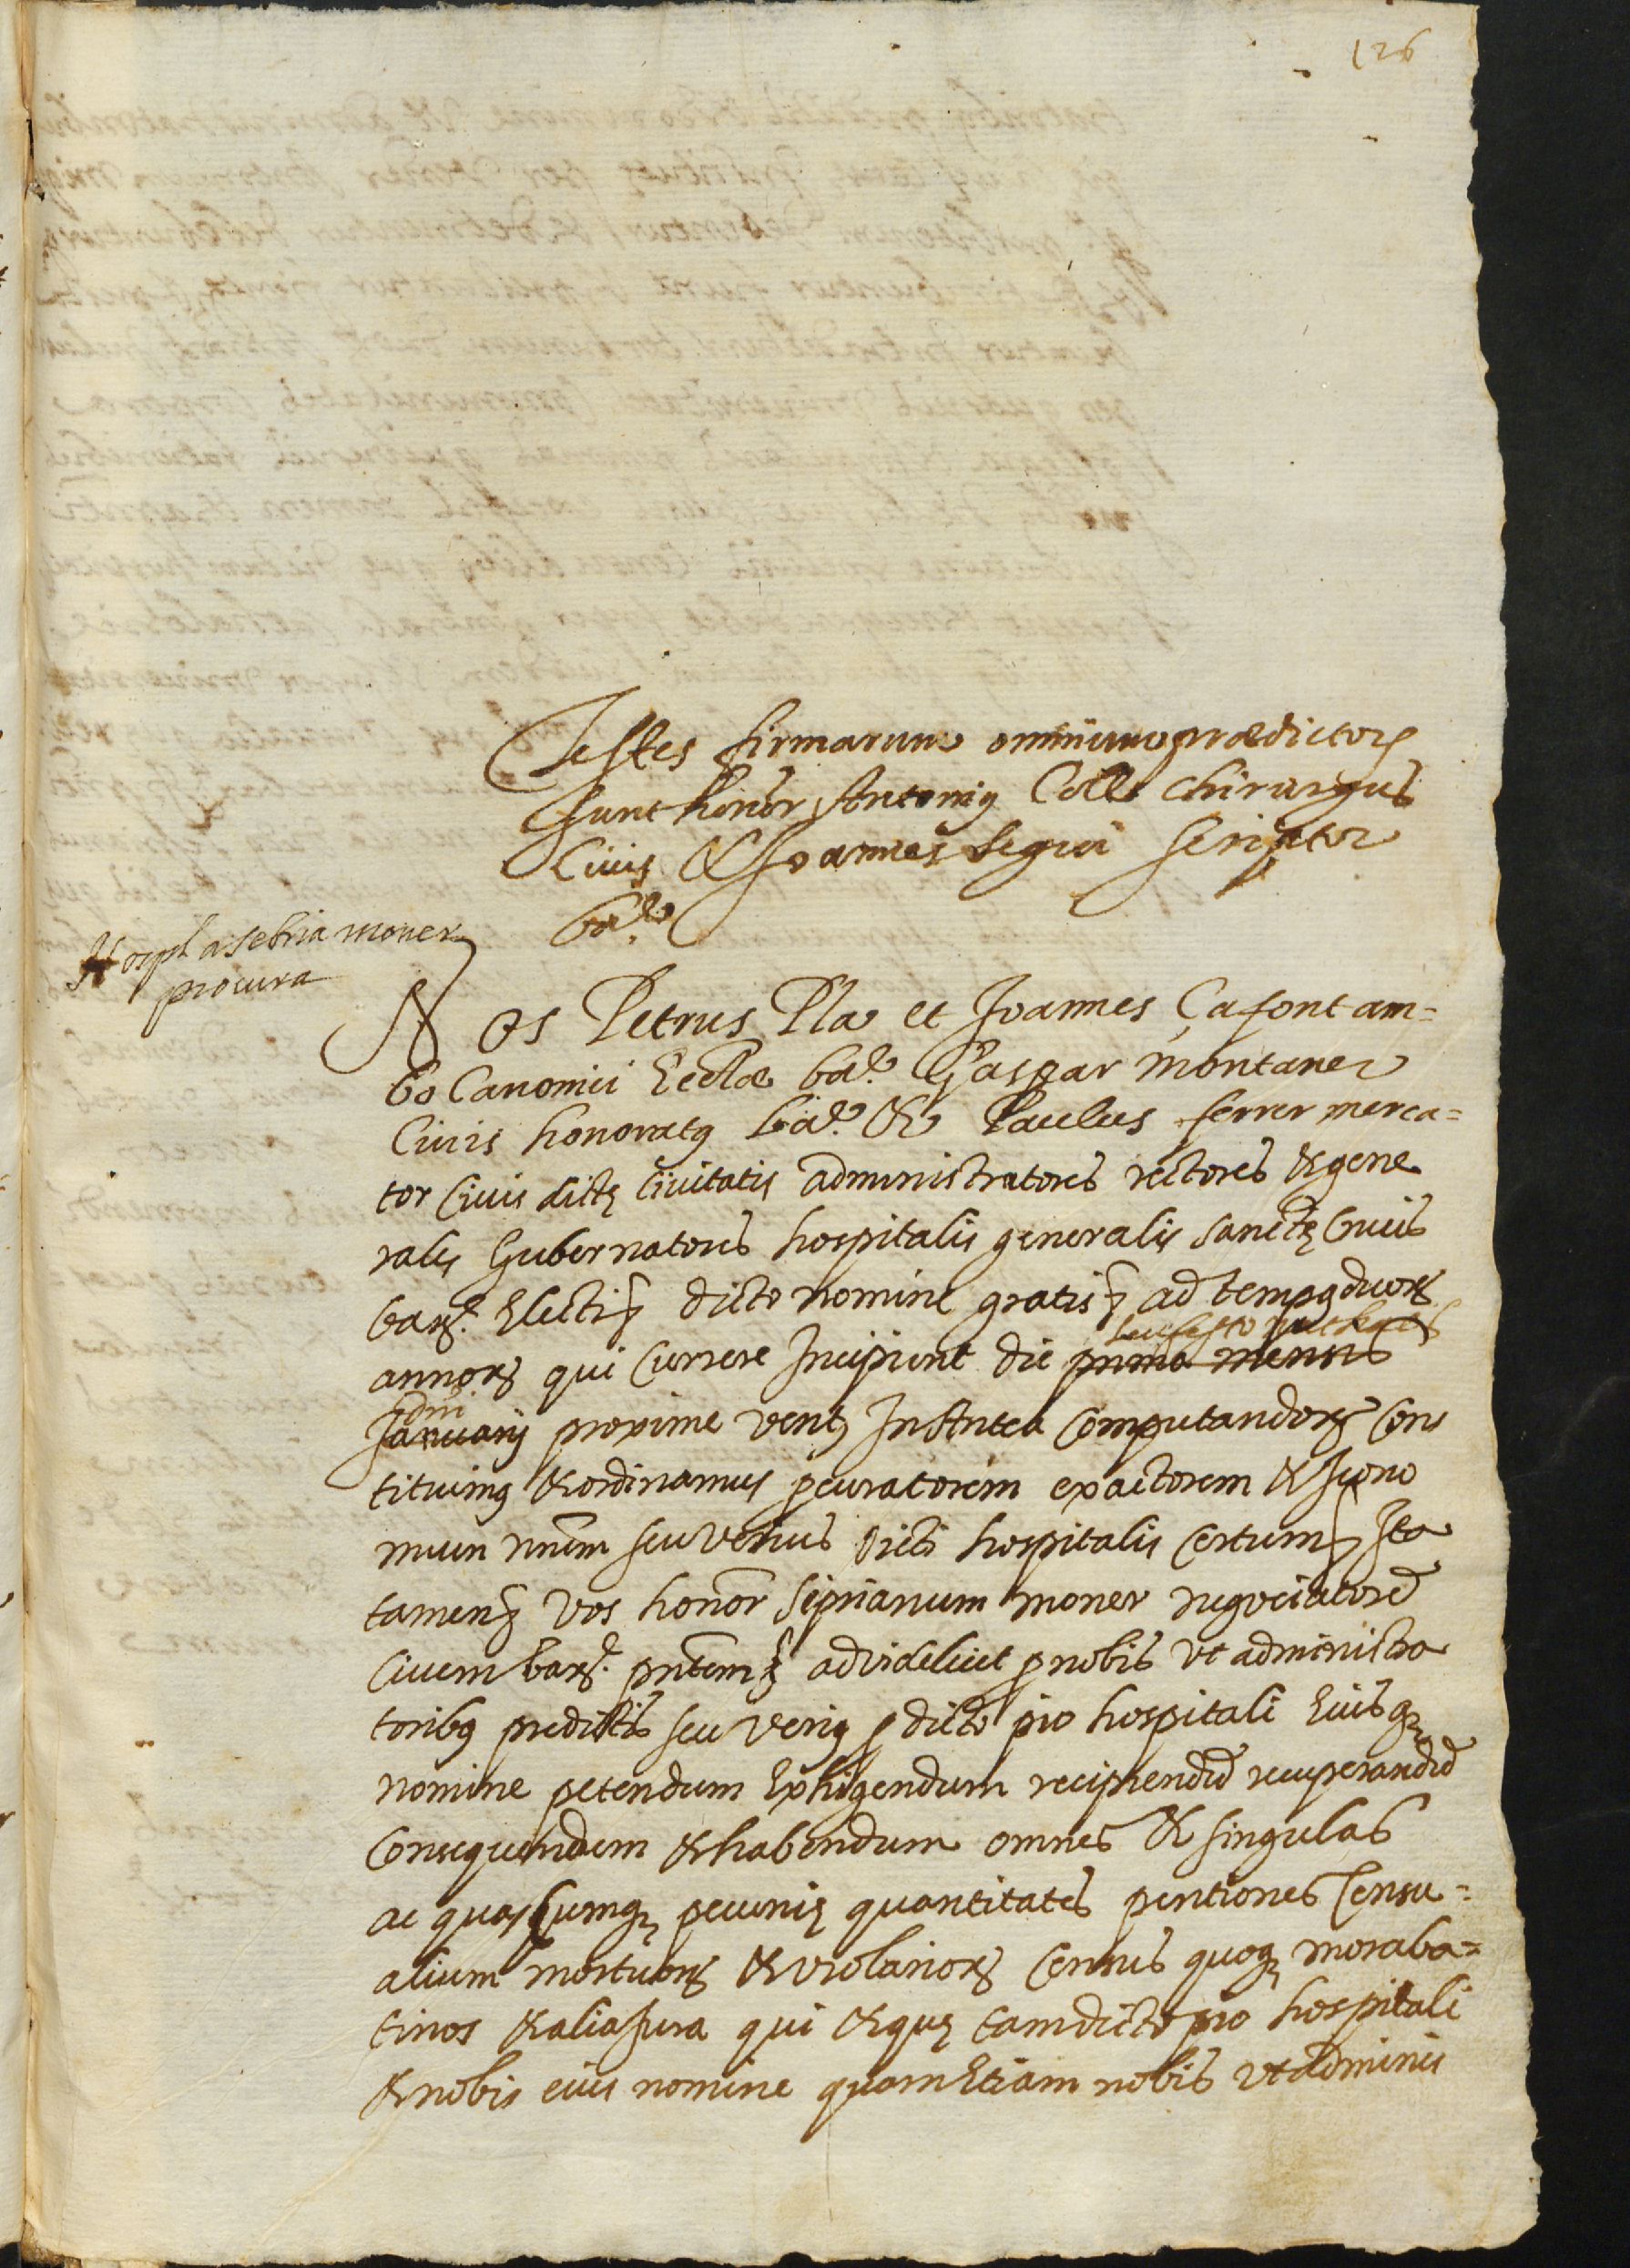 126
Testes firmarum omnium prædictorꝝ
sunt honor. Antoniꝰ Coll chirurgus
Civis & Joannes Segui scriptor
bar.ᵉ
Hospl a sebria moner
procura
Nos Petrus Pla et Joannes Çafont am=
bo Canonici Eccłæ bar.ᵉ Gaspar montaner
Civis honoratꝰ bar.ᵉ & Paulus ferrer merca=
tor Civis dictę Civitatis administratores rectores & gene
rales Gubernatores hospitalis generalis sanctę Crucis
barꝫ. Electi ꝫ dicto nomine gratis ꝫ ad tempꝰ duorꝝ
seu festo
annorꝝ qui Currere Incipient die primo mensis
dni
Januarij proxime ventꝫ In Antea Computandorꝝ Cons
tituimꝰ & ordinamus ꝓcuratorem exactorem & Icono
mum nr̄um seu verius dicti hospitalis Certum ꝫ Ita
tamen ꝫ vos honor Siprianum moner negociatorē
Civem barꝫ. pn̄tem ꝫ ad videlicet ꝓ nobis Vt administra
toribꝰ predictis seu veriꝰ ꝓ dicto pio hospitali Eiusqꝫ
nomine petendum Exhigendum recipiendū recuperandū
Consequendum & habendum omnes & singulas
ac quascumqꝫ pecunię quantitates pentiones Censu=
alium mortuorꝝ & violariorꝝ Census quoqꝫ moraba=
tinos & alia Jura qui & quę tam dicto pio hospitali
& nobis eius nomine quam Etiam nobis vt adminis